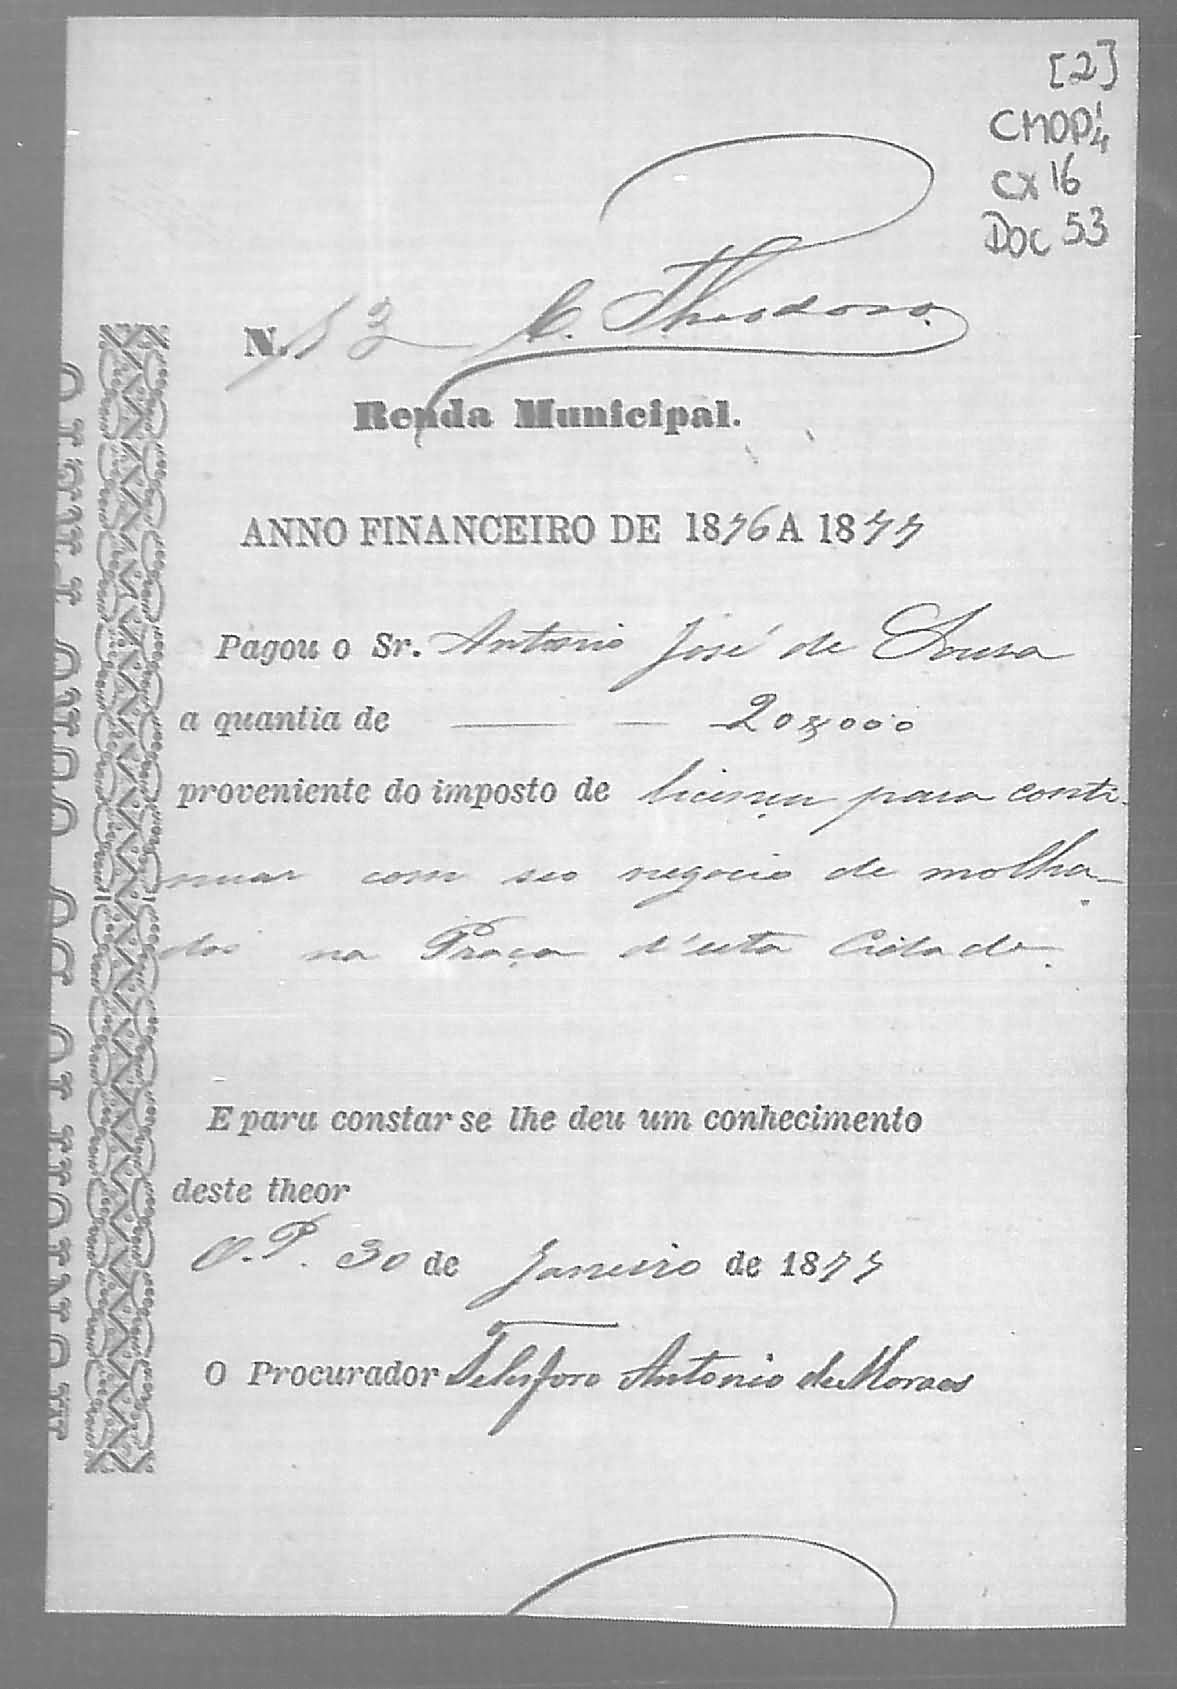 [2]
CMOP 1/4
CX 16
Doc 53
N. 52 C. Theodoro.
Renda Municipal.
ANNO FINANCEIRO DE 1876 A 1877
Pagou o Sr. Antonio José de Sousa
a quantia de 20$000
proveniente do imposto de licença para conti-
nuar com seo negocio de molha-
dos na Praça d'esta Cidade.
E para constar se lhe deu um conhecimento
deste theor
O.P. 30 de Janeiro de 1877
O Procurador Telesforo Antonio de Moraes